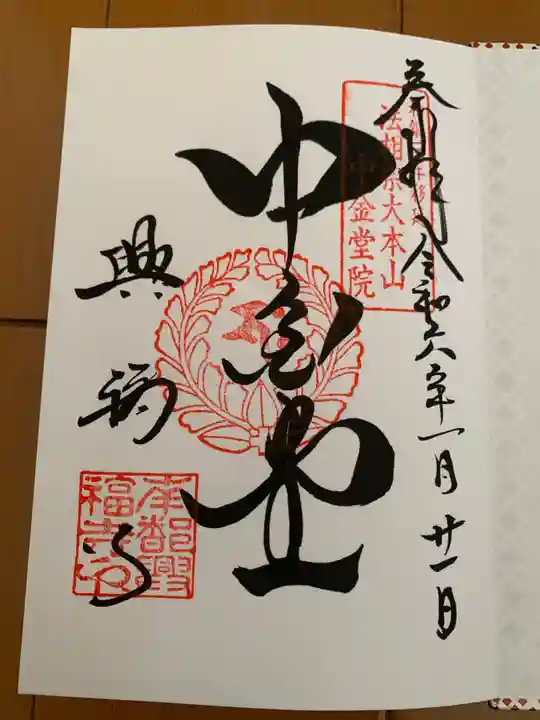 奉拝 令和六年一月廿一日
法相宗大本山
中金堂院
中金堂
興福寺
南都興
福寺印